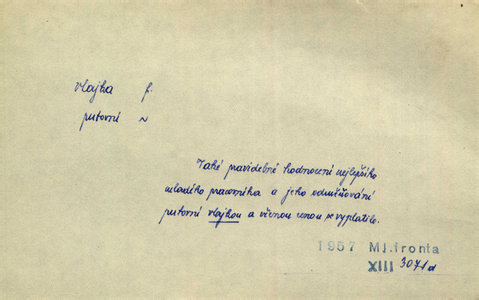 vlajka f.
putovní ~
Také pravidelné hodnocení nejlepšího
mladého pracovníka a jeho odměňování
putovní vlajkou a věcnou cenou se vyplatilo.
1957 Ml.fronta
XIII 3071d